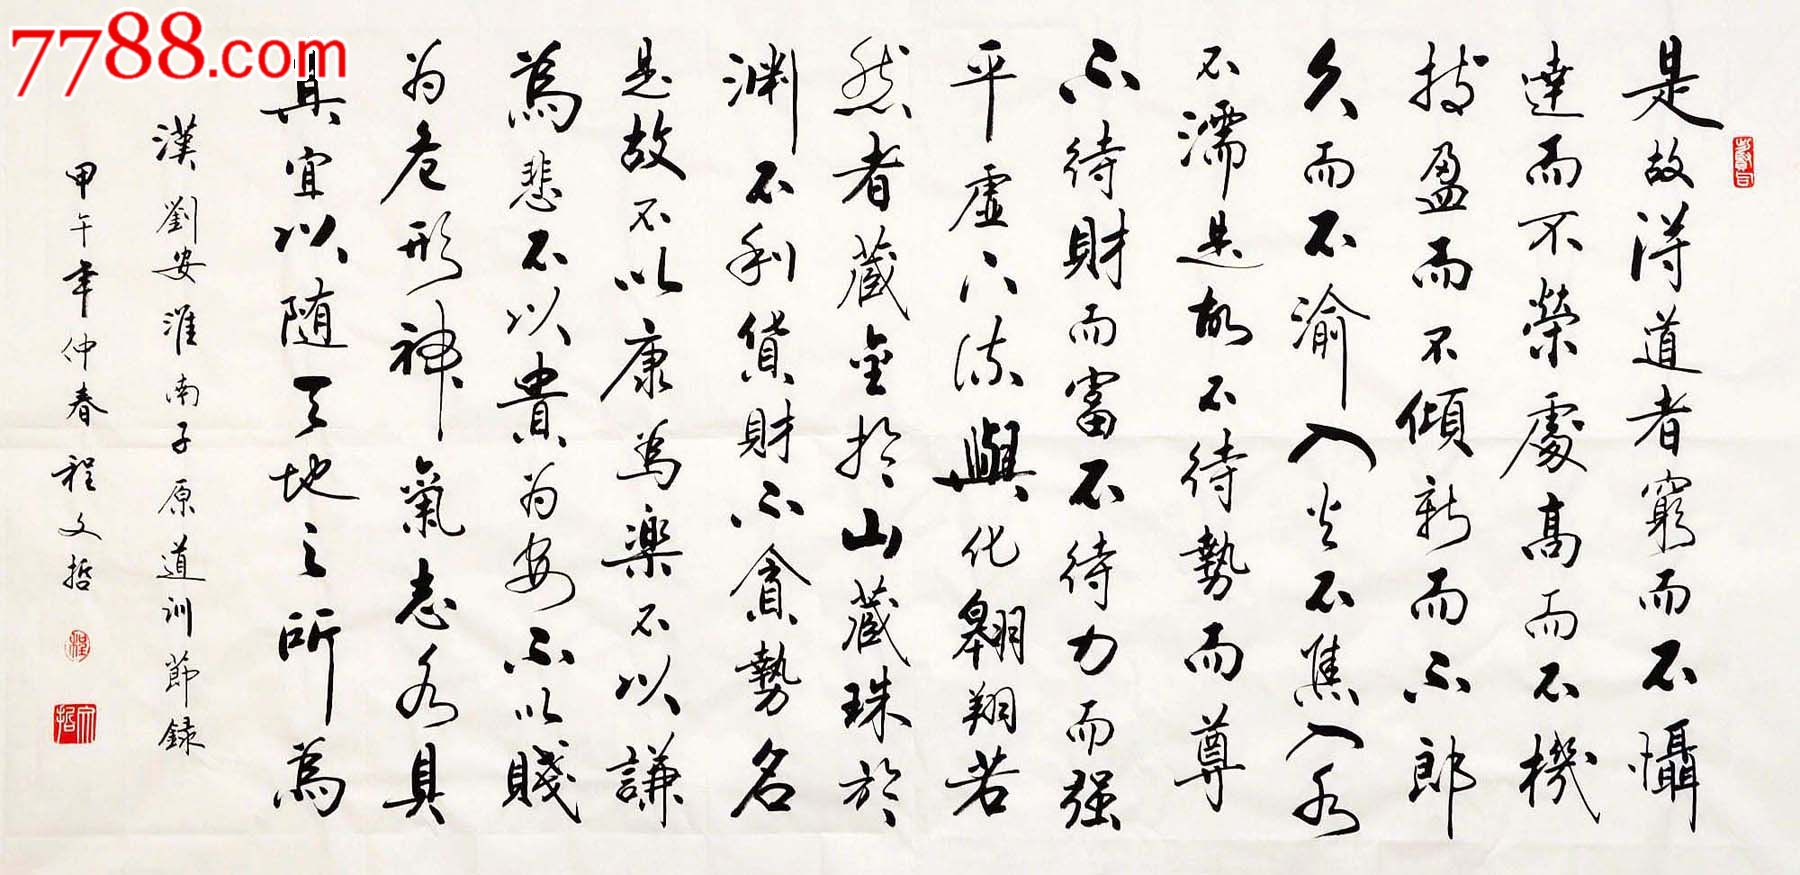 7788.com
是故得道者窮而不懾
達而不榮處高而不機
持盈而不傾新而不郎
久而不渝入火不焦入水
不濡是故不待勢而尊
不待財而富不待力而强
平虛下流與化翱翔若
然者藏金於山藏珠於
淵不利貨財不貪勢名
是故不以康為樂不以謙
為悲不以貴为安不以賤
为危形神氣志各具
其宜以随天地之所為
漢劉安淮南子原道訓節録
甲午年仲春程文哲
程
文哲